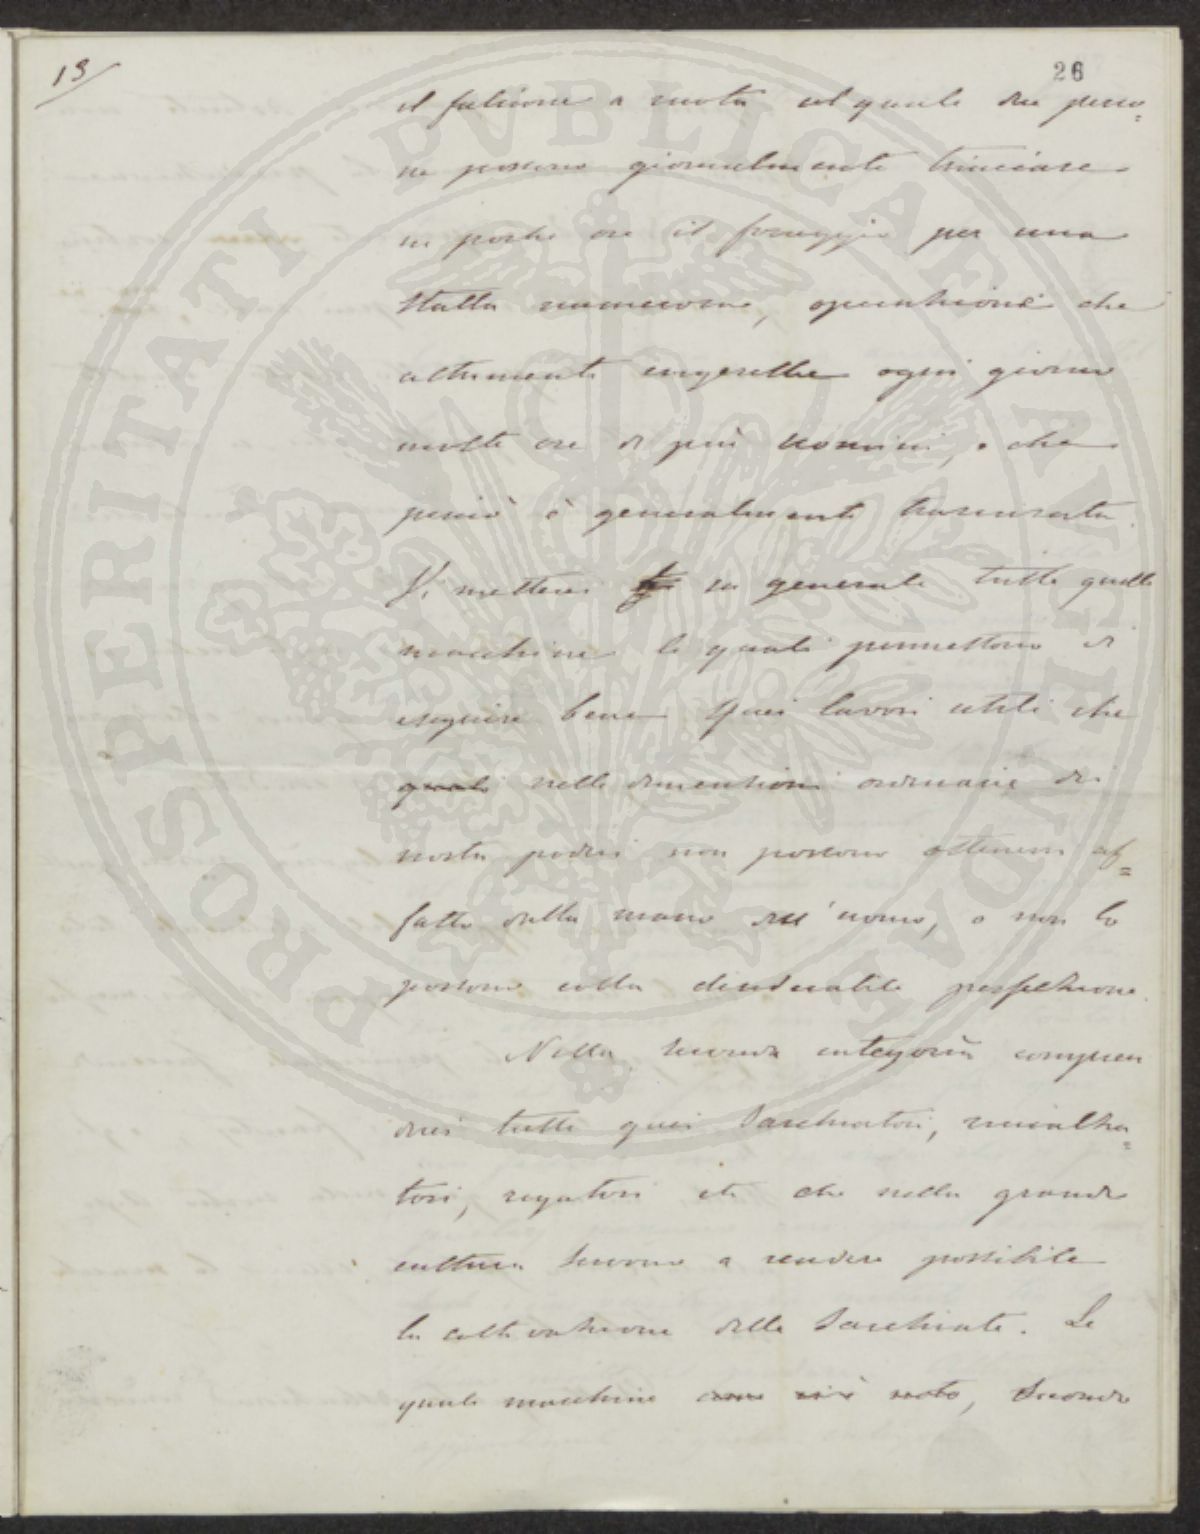 13/
26
il falcione a ruota col quale due perso=
ne possono giornalmente trinciare
in poche ore il foraggio per una
stalla numerosa, operazione che
altrimenti esigerebbe ogni giorno
molte ore di più uomini, e che
perciò è generalmente trascurata.
Vi metterei in generale tutte quelle
macchine le quali permettono di
eseguire bene quei lavori utili che
quali nelle dimensioni ordinarie dei
nostri poderi non possono ottenersi af=
fatto dalla mano dell'uomo, o non lo
possono colla desiderabile perfezione.
Nella seconda categoria compren
derei tutti quei sarchiatori, rincalza=
tori, rigatori etc che nella grande
cultura servono a rendere possibile
la coltivazione delle sarchiate. Le
quali macchine come noto, secondo
PROSPERITATI PVBLICAE AVGENDAE